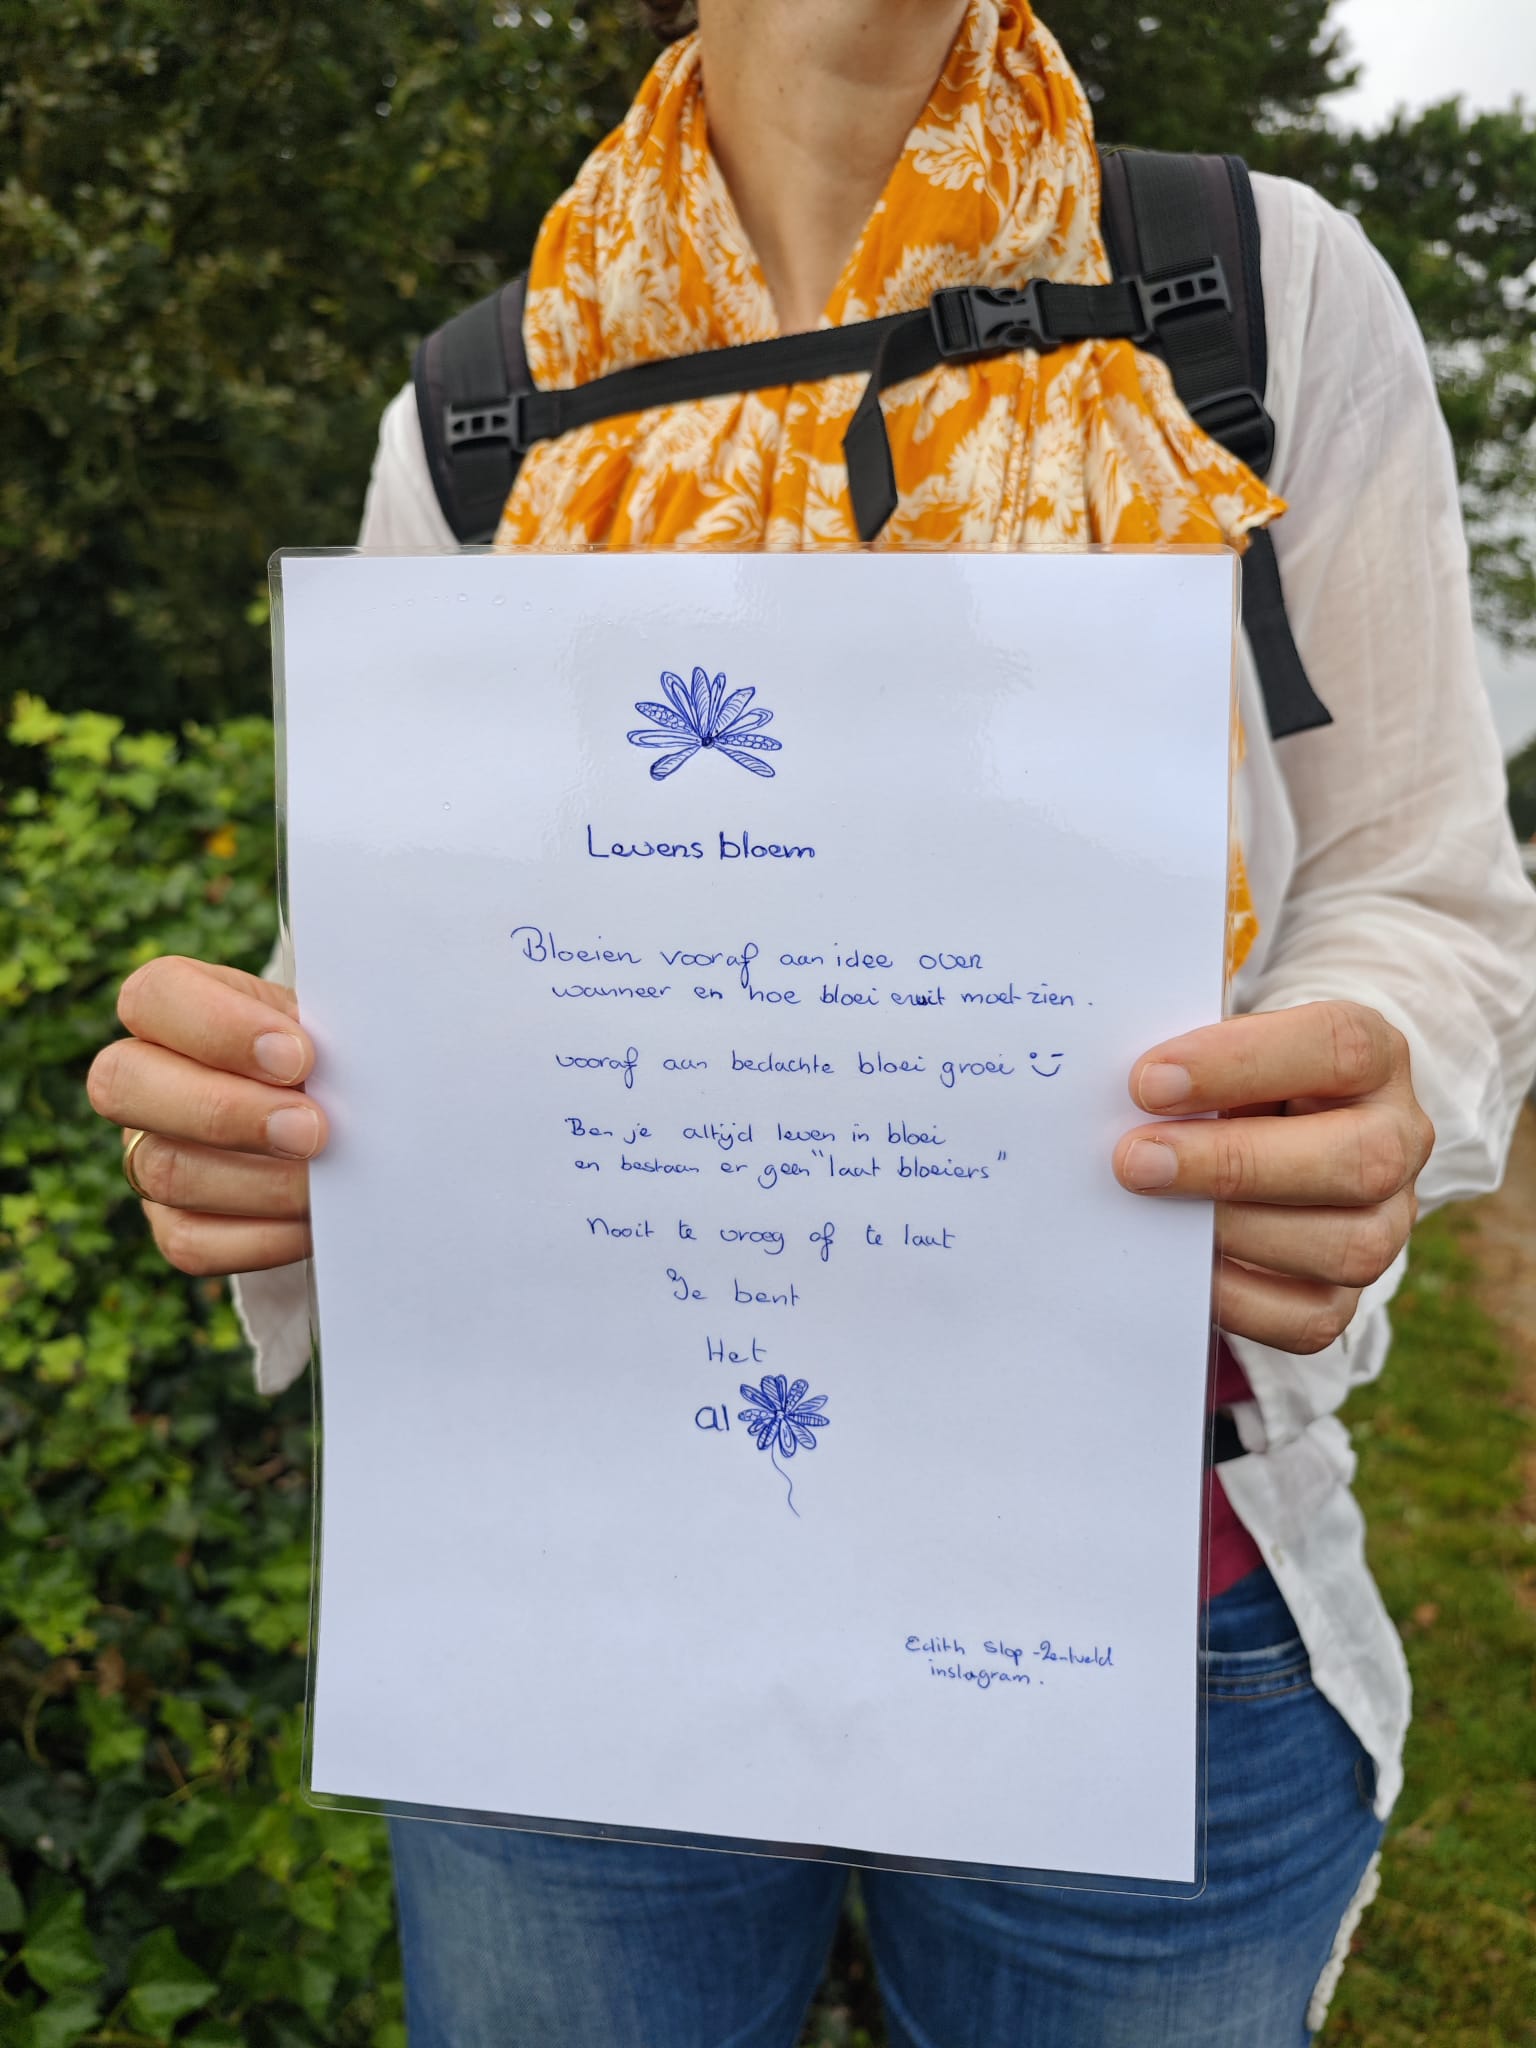 Levensbloem
Bloeien vooraf aan idee over
wanneer en hoe bloei eruit moet zien.
vooraf aan bedachte bloei groei
Ben je altijd leven in bloei
en bestaan er geen "laat bloeiers"
Nooit te vroeg of te laat
Je bent
Het
al
Edith Slop-Zentveld
instagram.